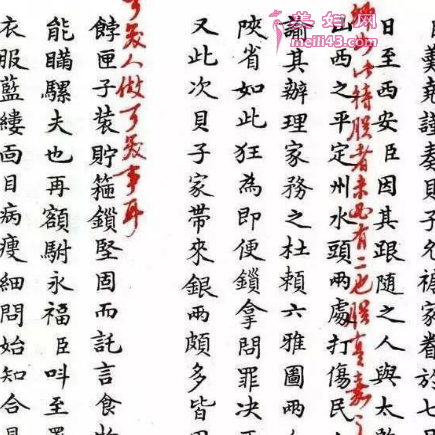 羹堯謹奏貝子允禟家眷於七
日至西安臣因其跟隨之人與太
如此待朕者未必有二也朕真嘉
山西之平定州水頭兩處打傷民
諭其辦理家務之杜賴六雅圖兩
陝省如此狂為即便鎖拿問罪決
又此次貝子家帶來銀兩頗多皆
可笑人做可笑事耳
餑匣子裝貯箍鎖堅固而託言食
能瞞騾夫也再額駙永福臣叫至署
衣服藍縷面目病瘦細問始知合
美妇网
meili43.com